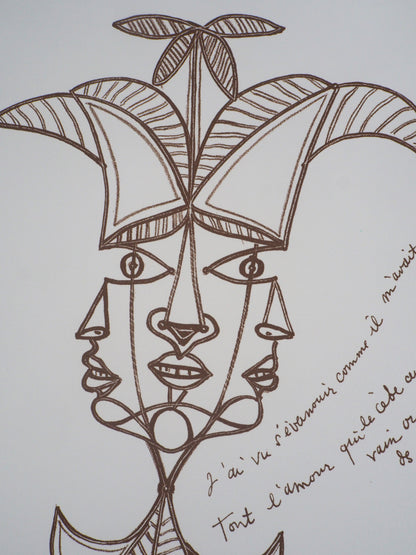 J'ai vu s'évanouir comme il m'avait
Tout l'amour qu'il
vain